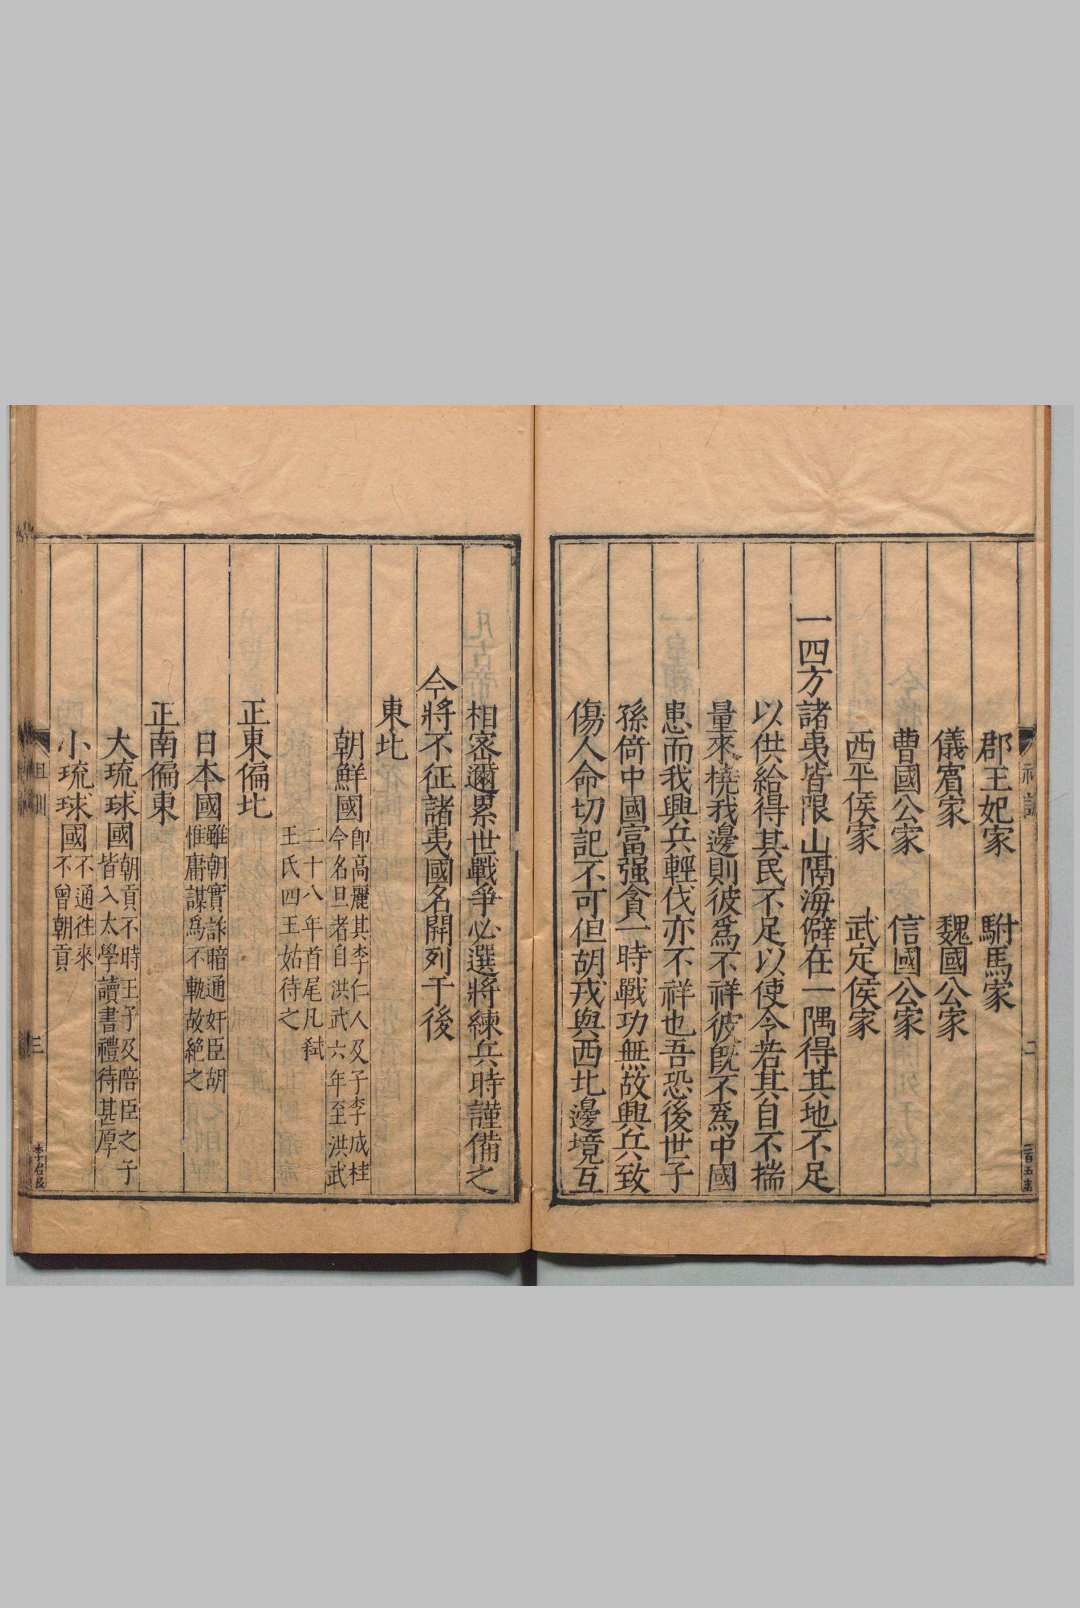 郡王妃家　駙馬家
儀賓家　魏國公家
曹國公家　信國公家
西平侯家　武定侯家
一四方諸夷皆限山隔海僻在一隅得其地不足
以供給得其民不足以使令若其自不揣
量來撓我邊則彼爲不祥彼旣不爲中國
患而我興兵輕伐亦不祥也吾恐後世子
孫倚中國富强貪一時戰功無故興兵致
傷人命切記不可但胡戎與西北邊境互
相密邇累世戰爭必選將練兵時謹備之
今將不征諸夷國名開列于後
東北
朝鮮國
卽高麗其李仁人及子李成桂
今名旦者自洪武六年至洪武
二十八年首尾凡弒
王氏四王姑待之
正東偏北
日本國
雖朝實詐暗通奸臣胡
惟庸謀爲不軌故絶之
正南偏東
大琉球國
朝貢不時王子及陪臣之子
皆入太學讀書禮待甚厚
小琉球國
不通徃來
不曾朝貢
三